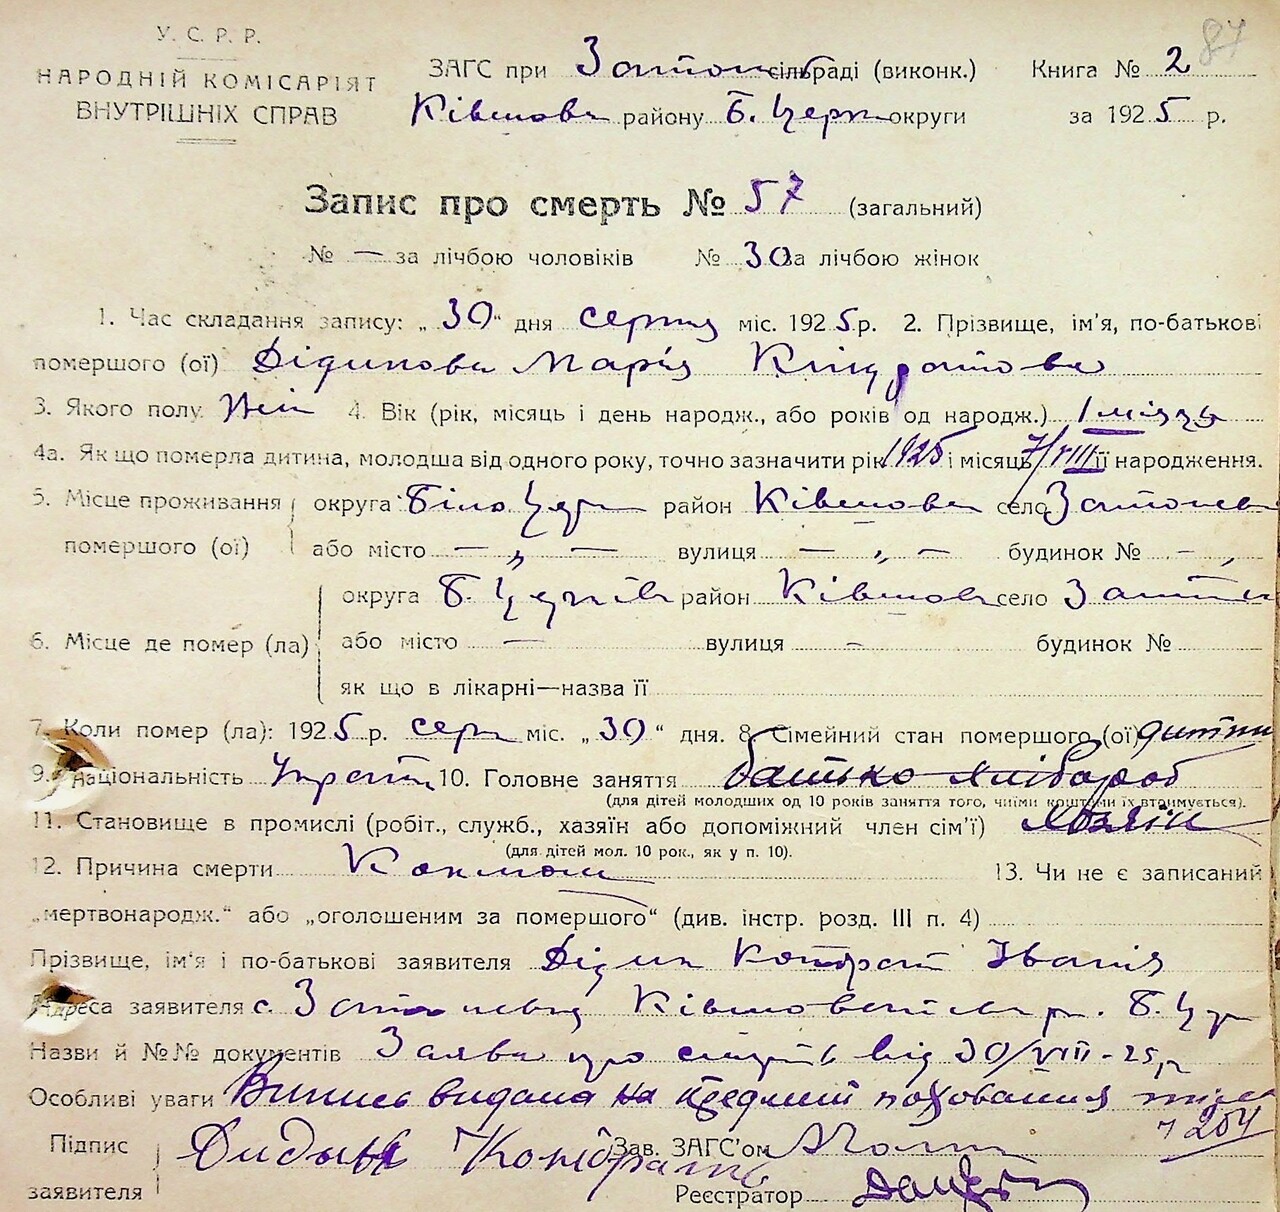 87
У. С. Р. Р.
НАРОДНІЙ КОМІСАРІЯТ
ВНУТРІШНІХ СПРАВ
ЗАГС при сільраді (виконк.) Книга № 2
району Б. Церк округи за 1925 р.
Запис про смерть № 57 (загальний)
№ — за лічбою чоловіків № 30 за лічбою жінок
1. Час складання запису: „30“ дня серпня міс. 1925 р. 2. Прізвище, ім'я, по-батькові
помершого (ої) Дідикова Марія Кіндратова
3. Якого полу Жін 4. Вік (рік, місяць і день народж., або років од народж.) 1 місяць
4а. Як що померла дитина, молодша від одного року, точно зазначити рік 1925 і місяць 7/VIII її народження.
5. Місце проживання округа Біло Церк район село
помершого (ої) або місто — „ — вулиця — „ — будинок № — „
округа Б. Церків район село
6. Місце де помер (ла) або місто — вулиця — будинок №
як що в лікарні—назва її
7. Коли помер (ла): 1925 р. серп міс. „30“ дня. 8. Сімейний стан помершого (ої) дитина
9. Національність Україн 10. Головне заняття батько хлібороб
(для дітей молодших од 10 років заняття того, чиїми коштами їх втримується).
11. Становище в промислі (робіт., служб., хазяїн або допоміжний член сім'ї) хозяїн
(для дітей мол. 10 рок., як у п. 10).
12. Причина смерти Коклюш 13. Чи не є записаний
„мертвонародж.“ або „оголошеним за помершого“ (див. інстр. розд. III п. 4)
Прізвище, ім'я і по-батькові заявителя Дідик Кондрат Іванів
Адреса заявителя с. р. Б. Цер
Назви й №№ документів Заява про смерть від 30/VIII-25 р
Особливі уваги Випись видана на предмет поховання тіла
№ 204
Підпис Дидык Кондрат Зав. ЗАГС'ом
заявителя Реєстратор